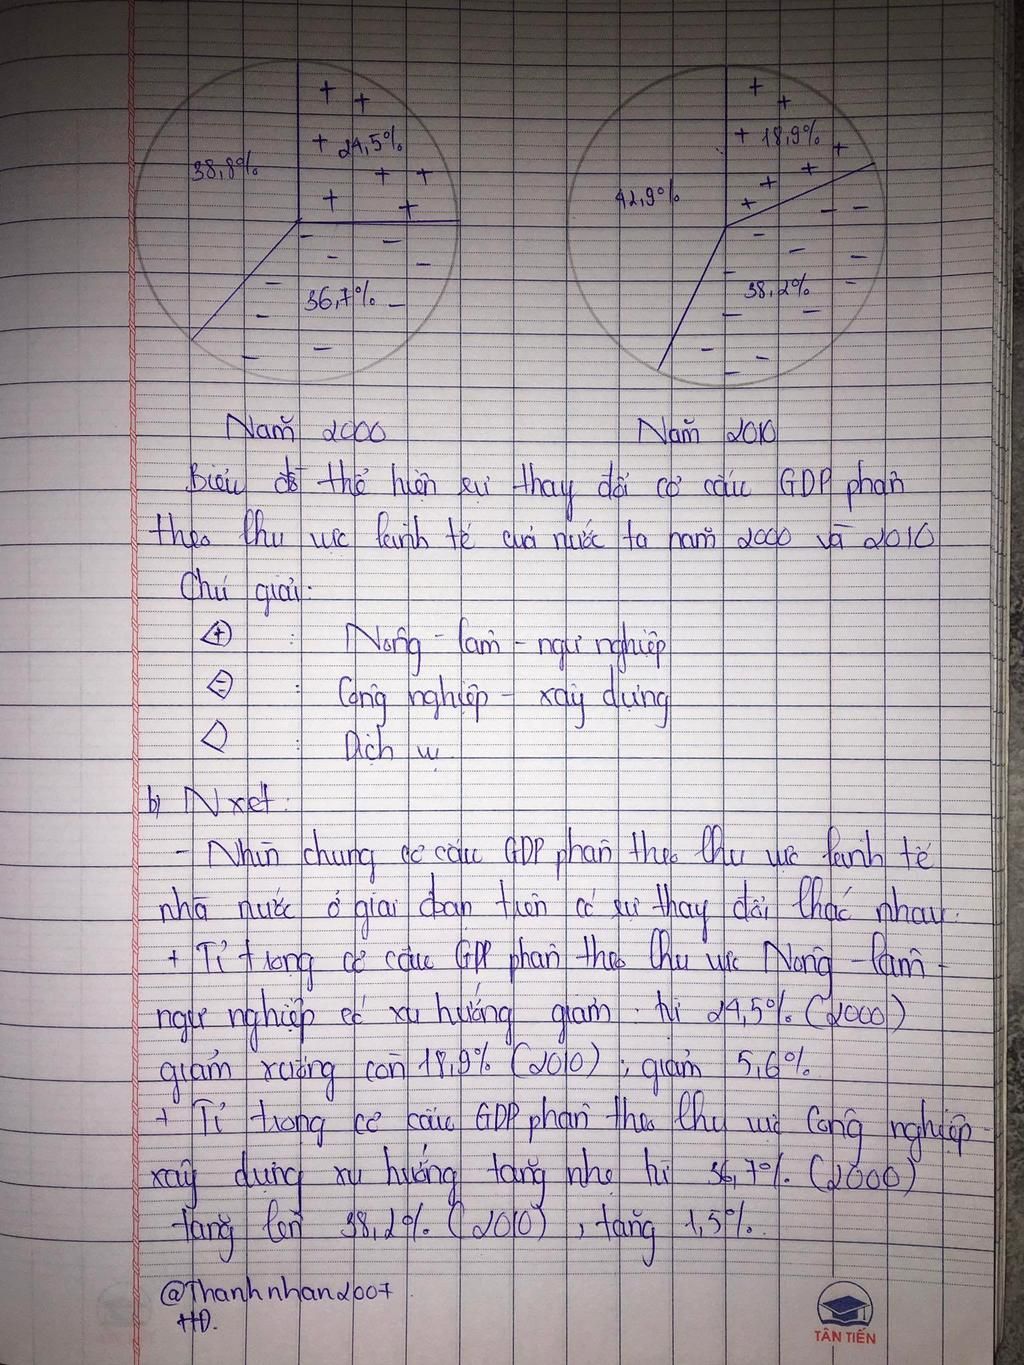 38,8%
24,5%
36,7%
42,9%
18,9%
38,2%
Năm 2000
Năm 2010
Biểu đồ thể hiện sự thay đổi cơ cấu GDP phân
theo khu vực kinh tế của nước ta năm 2000 và 2010
Chú giải:
+ : Nông - lâm - ngư nghiệp
- : Công nghiệp - xây dựng
: Dịch vụ
b) Nxét:
- Nhìn chung cơ cấu GDP phân theo khu vực kinh tế
nhà nước ở giai đoạn trên có sự thay đổi khác nhau.
+ Tỉ trọng cơ cấu GDP phân theo khu vực Nông - lâm -
ngư nghiệp có xu hướng giảm từ 24,5% (2000)
giảm xuống còn 18,9% (2010), giảm 5,6%
+ Tỉ trọng cơ cấu GDP phân theo khu vực Công nghiệp -
xây dựng xu hướng tăng nhẹ từ 36,7% (2000)
tăng lên 38,2% (2010), tăng 1,5%.
@Thanhnhan2007
HĐ.
TÂN TIẾN